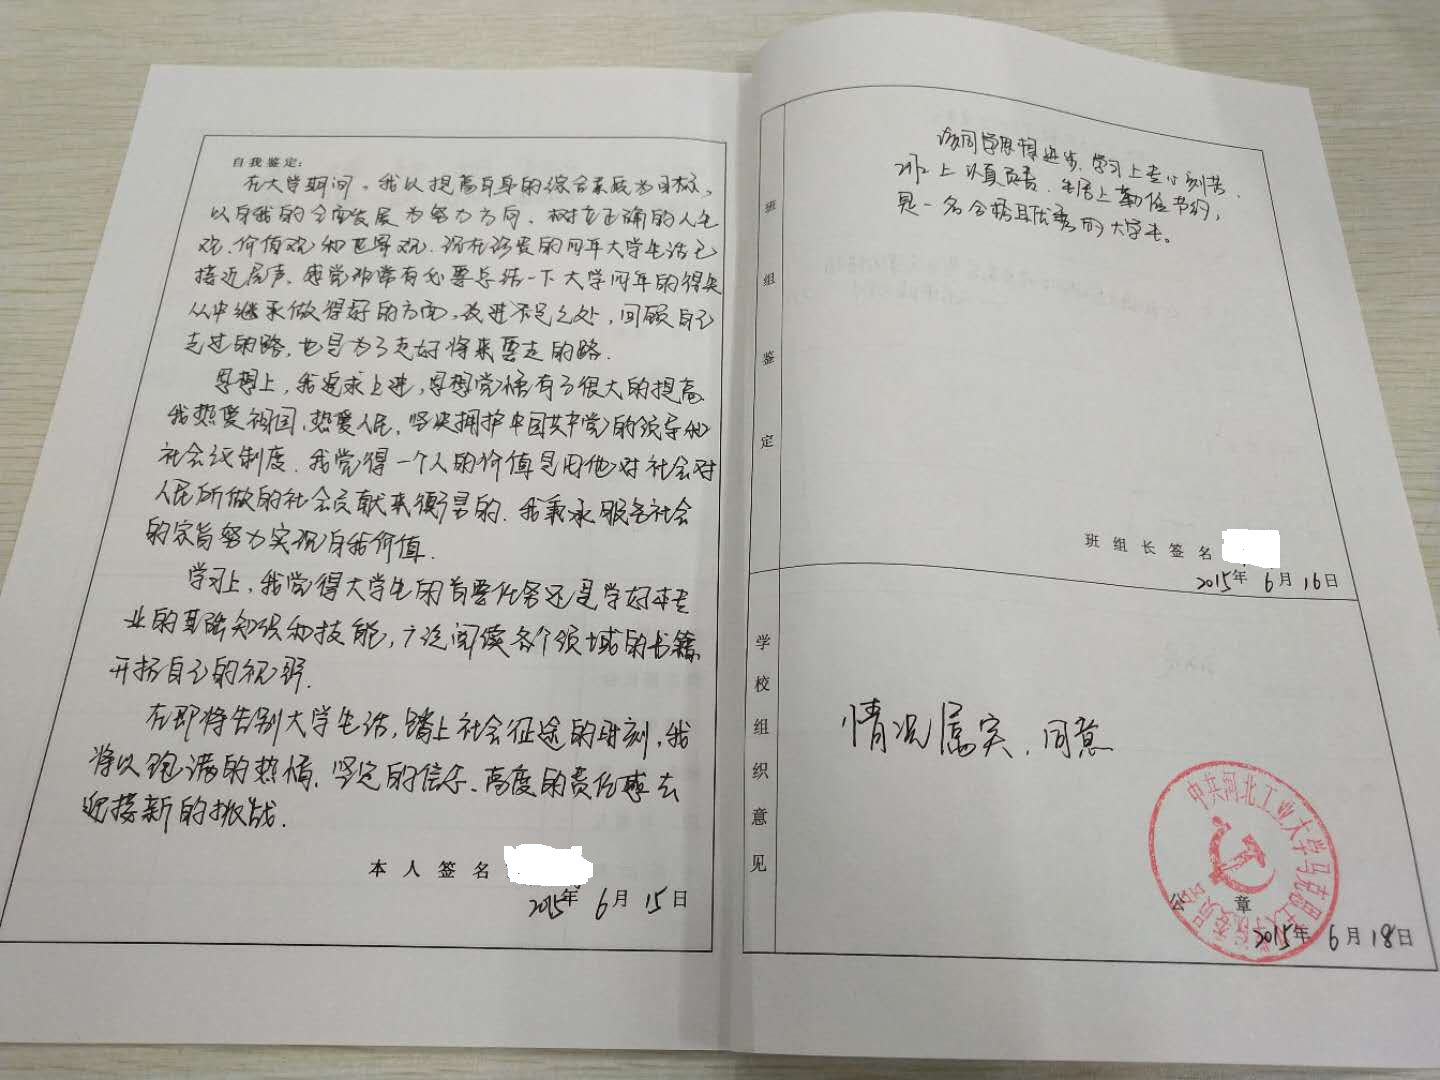 自我鉴定:
在大学期间,我以提高自身的综合素质为目标,
以自我的全面发展为努力方向,树立正确的人生
观、价值观和世界观.现在珍贵的四年大学生活已
接近尾声,感觉非常有必要总结一下大学四年的得失
从中继承做得好的方面,改进不足之处,回顾自己
走过的路,也是为了走好将来要走的路.
思想上,我追求上进,思想觉悟有了很大的提高
我热爱祖国,热爱人民,坚决拥护中国共产党的领导和
社会主义制度.我觉得一个人的价值是用他对社会对
人民所做的社会贡献来衡量的.我秉承服务社会
的宗旨努力实现自我价值.
学习上,我觉得大学生的首要任务还是学好本专
业的基础知识和技能,广泛阅读各个领域的书籍
开拓自己的视野.
在即将告别大学生活,踏上社会征途的时刻,我
将以饱满的热情、坚定的信念、高度的责任感去
迎接新的挑战.
本人签名
2015年 6月 15日
班组鉴定
该同学思想进步,学习上专心刻苦,
班上认真负责,生活上勤俭节约,
是一名合格且优秀的大学生。
班组长签名
2015年 6月 16日
学校组织意见
情况属实,同意
中共河北工业大学马克思主义学院委员会
公 章
2015年 6月 18日